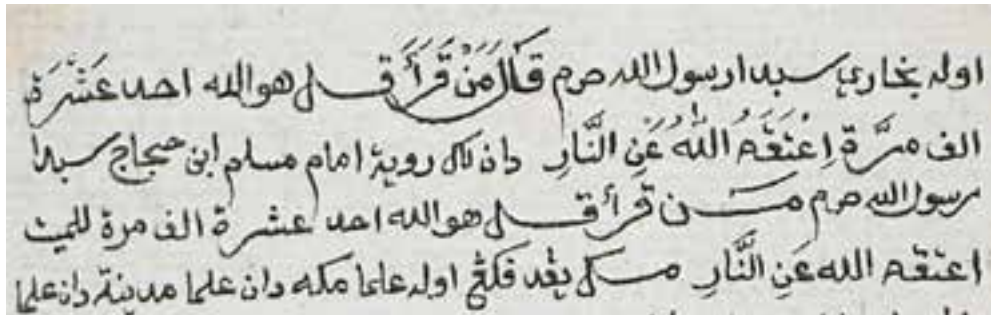 اوله بخاري سبدا رسول الله صم قَالَ مَنْ قَرَأَ قل هو الله احد عَشْرَةَ
الف مَرَّة اِعْتَقَهُ اللهُ عَنِ النَّارِ دان لاݢ رواية امام مسلم ابن حجاج سبدا
رسول الله صم مَن قرأ قل هو الله احد عشرة الف مرة للميت
اعتقه الله عَنِ النَّارِ مک يڠد فكڠ اوله علما مكه دان علما مدينة دان علما